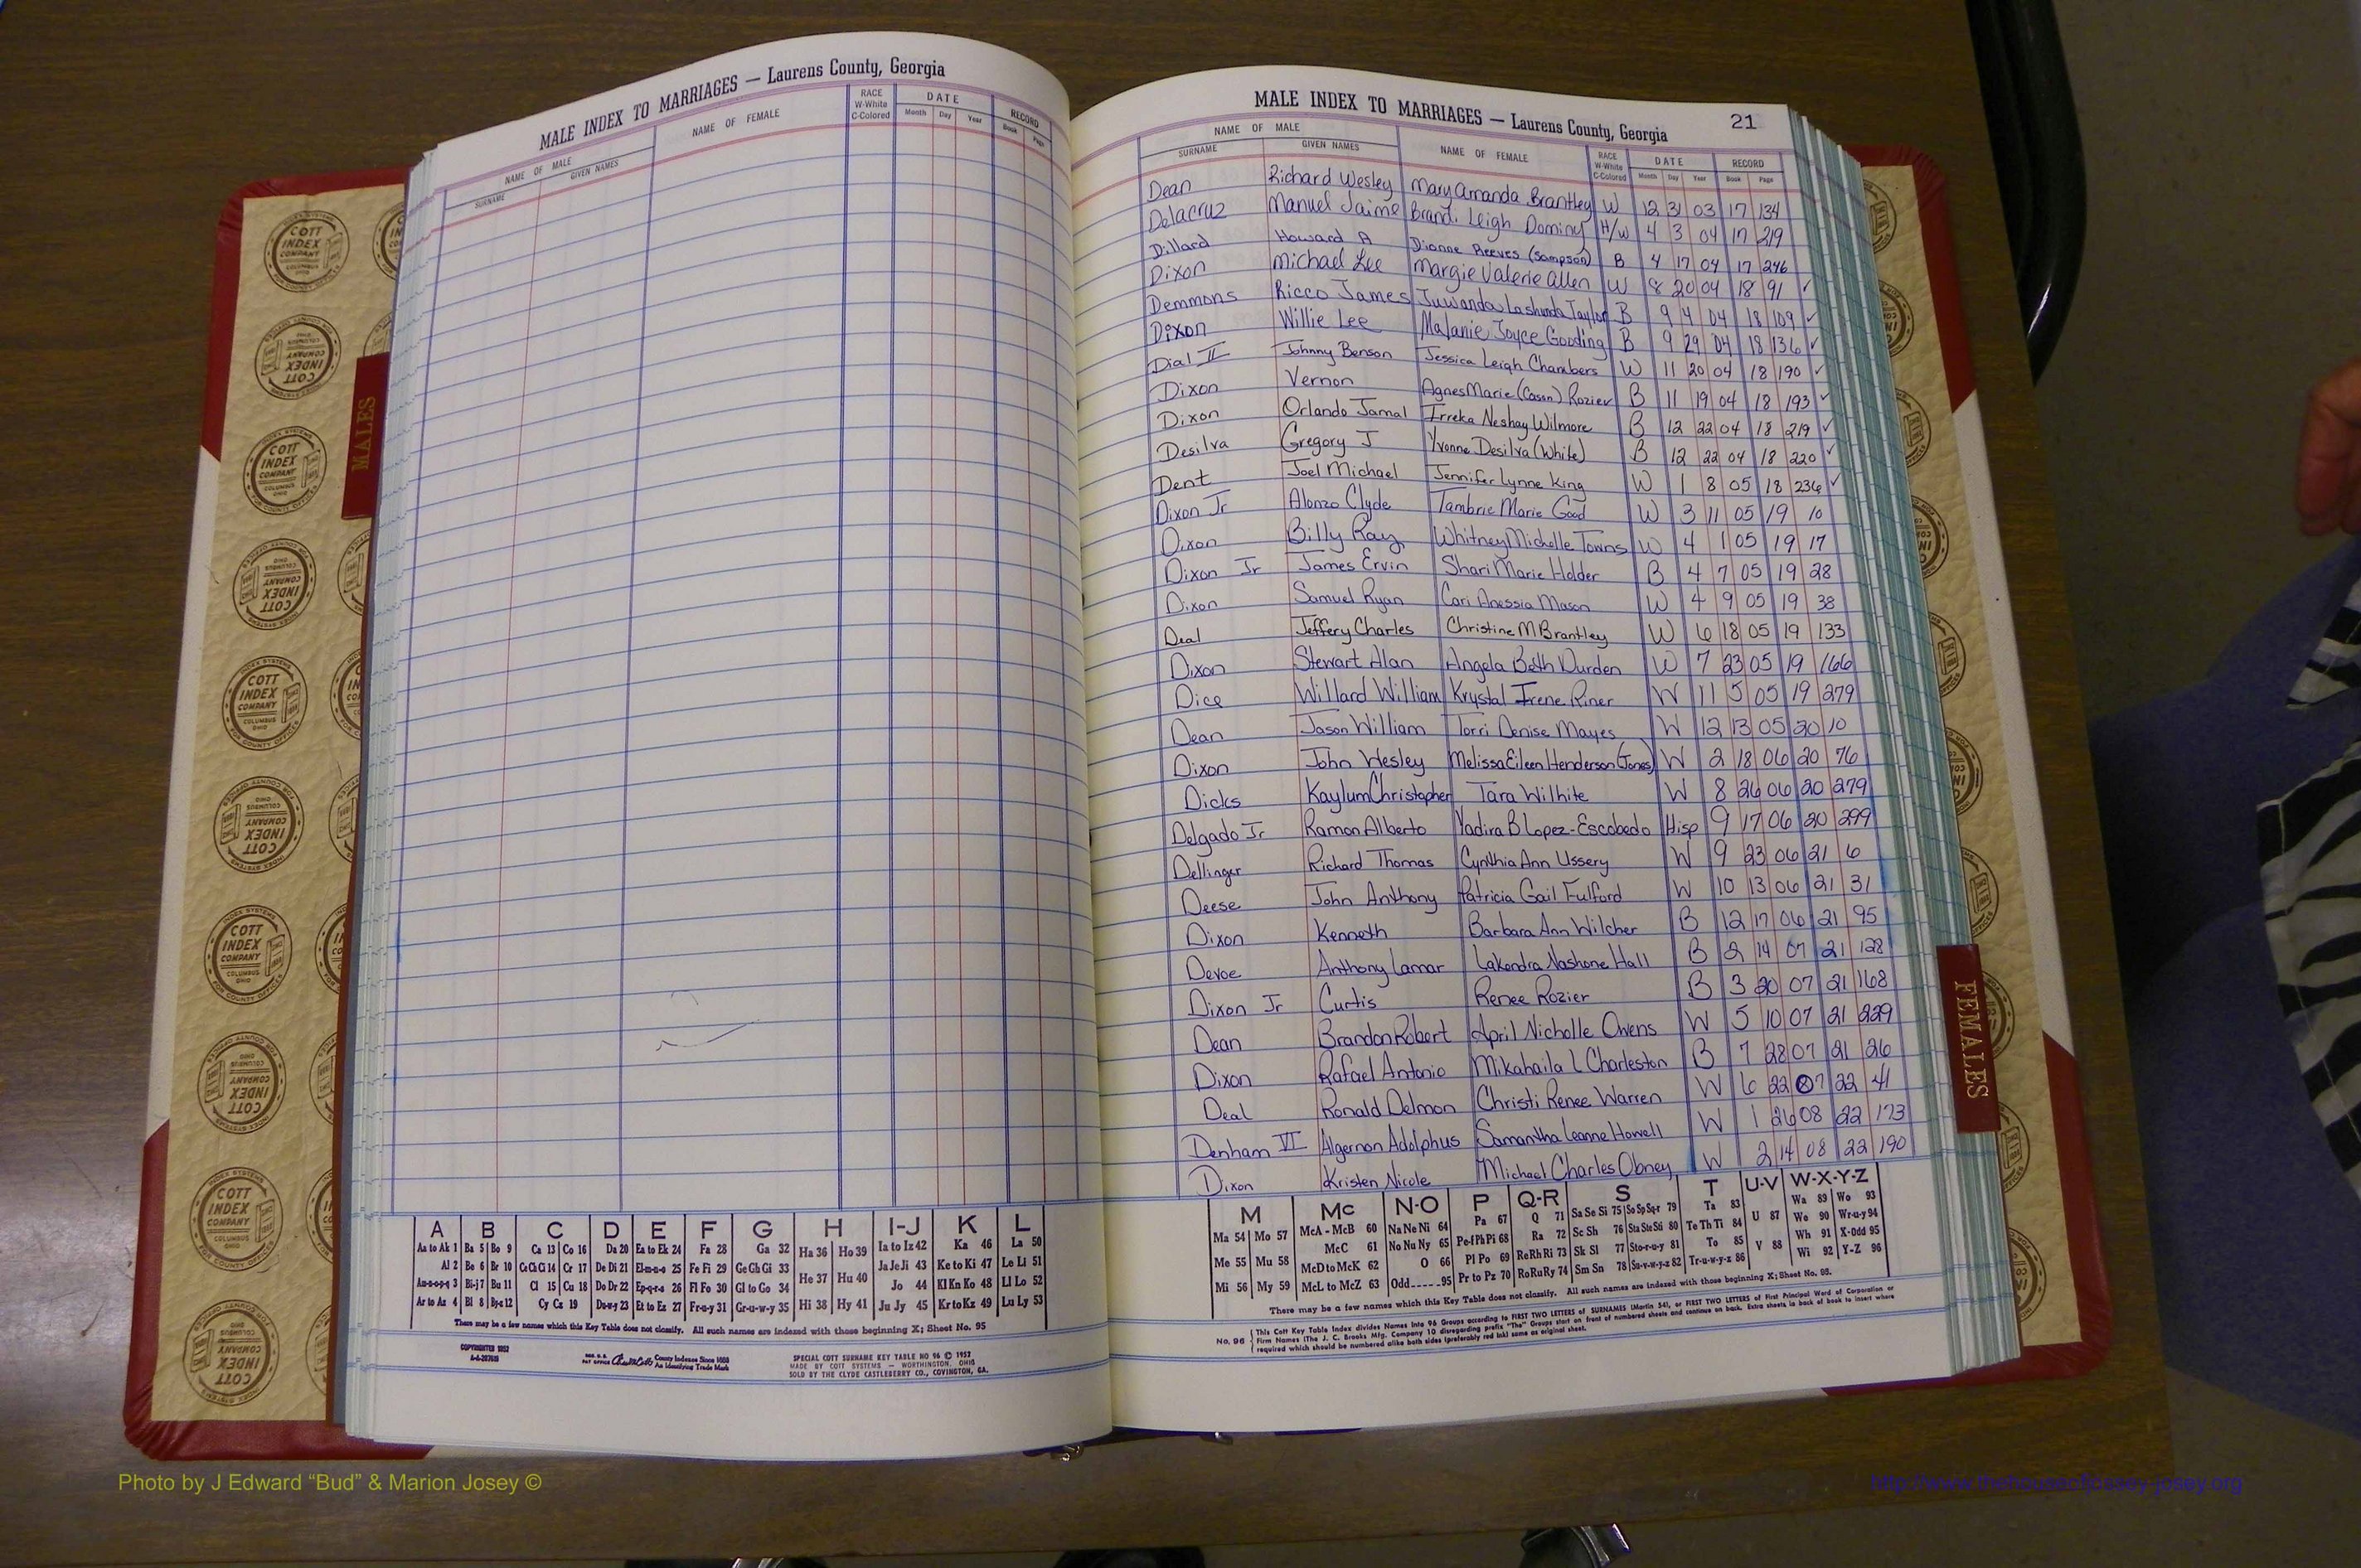 MALE INDEX TO MARRIAGES — Laurens County, Georgia
NAME OF MALE
SURNAME
GIVEN NAMES
NAME OF FEMALE
RACE
W-White
C-Colored
DATE
Month Day Year
RECORD
Book Page
MALES
COTT INDEX COMPANY
COLUMBUS OHIO
INDEX SYSTEMS
FOR COUNTY OFFICES
MALE INDEX TO MARRIAGES — Laurens County, Georgia 21
NAME OF MALE
SURNAME GIVEN NAMES NAME OF FEMALE
RACE
W-White
C-Colored
DATE
Month Day Year
RECORD
Book Page
Dean Richard Wesley Mary Amanda Brantley W 12 31 03 17 134
Delacruz Manuel Jaime Brandi Leigh Dominy H/W 4 3 04 17 219
Dillard Howard A Dianne Reeves (Sampson) B 4 17 04 17 246
Dixon Michael Lee Margie Valerie Allen W 8 20 04 18 91 ✓
Demmons Ricco James Juwanda Lashunda Taylor B 9 4 04 18 109 ✓
Dixon Willie Lee Malanie Joyce Gooding B 9 29 04 18 136 ✓
Dial II Johnny Benson Jessica Leigh Chambers W 11 20 04 18 190 ✓
Dixon Vernon Agnes Marie (Cason) Rozier B 11 19 04 18 193 ✓
Dixon Orlando Jamal Irreka Neshay Wilmore B 12 22 04 18 219 ✓
Desilva Gregory J Yvonne Desilva (White) B 12 22 04 18 220 ✓
Dent Joel Michael Jennifer Lynne King W 1 8 05 18 236 ✓
Dixon Jr Alonzo Clyde Tambrie Marie Good W 3 11 05 19 10
Dixon Billy Ray Whitney Michelle Towns W 4 1 05 19 17
Dixon Jr James Ervin Shari Marie Holder B 4 7 05 19 28
Dixon Samuel Ryan Cori Anessia Mason W 4 9 05 19 38
Deal Jeffery Charles Christine M Brantley W 6 18 05 19 133
Dixon Stewart Alan Angela Beth Durden W 7 23 05 19 166
Dice Willard William Krystal Irene Riner W 11 5 05 19 279
Dean Jason William Torri Denise Mayes W 12 13 05 20 10
Dixon John Wesley Melissa Eileen Henderson (Jones) W 2 18 06 20 76
Dicks Kaylum Christopher Tara Wilhite W 8 26 06 20 279
Delgado Jr Ramon Alberto Yadira B Lopez-Escobedo Hisp 9 17 06 20 299
Dellinger Richard Thomas Cynthia Ann Ussery W 9 23 06 21 6
Deese John Anthony Patricia Gail Fulford W 10 13 06 21 31
Dixon Kenneth Barbara Ann Wilcher B 12 17 06 21 95
Devoe Anthony Lamar Lakendra Nashone Hall B 2 14 07 21 128
Dixon Jr Curtis Renee Rozier B 3 20 07 21 168
Dean Brandon Robert April Nicholle Owens W 5 10 07 21 229
Dixon Rafael Antonio Mikahaila L Charleston B 7 28 07 21 26
Deal Ronald Delmon Christi Renee Warren W 6 22 07 22 41
Denham VI Algernon Adolphus Samantha Leanne Howell W 1 26 08 22 173
Dixon Kristen Nicole Michael Charles Obney W 2 14 08 22 190
FEMALES
A B C D E F G H I-J K L
Aa to Ak 1 Ba 5 Bo 9 Ca 13 Co 16 Da 20 Ea to Ek 24 Fa 28 Ga 32 Ha 36 Ho 39 Ia to Iz 42 Ka 46 La 50
Al 2 Be 6 Br 10 Ce Ch Ci 14 Cr 17 De Di 21 El-m-n-o 25 Fe Fi 29 Ge Gh Gi 33 He 37 Hu 40 Ja Je Ji 43 Ke to Ki 47 Le Li 51
An-o-p-q 3 Bi-j 7 Bu 11 Cl 15 Cu 18 Do Dr 22 Ep-q-r-s 26 Fl Fo 30 Gl to Go 34 Jo 44 Kl Kn Ko 48 Ll Lo 52
Ar to Az 4 Bl 8 By-z 12 Cy Cz 19 Du-w-y 23 Et to Ez 27 Fr-u-y 31 Gr-u-w-y 35 Hi 38 Hy 41 Ju Jy 45 Kr to Kz 49 Lu Ly 53
There may be a few names which this Key Table does not classify. All such names are indexed with those beginning X; Sheet No. 95
COPYRIGHTED 1952
County Indexes Since 1888
An Identifying Trade Mark
SPECIAL COTT SURNAME KEY TABLE NO 96 © 1952
MADE BY COTT SYSTEMS — WORTHINGTON, OHIO
SOLD BY THE CLYDE CASTLEBERRY CO., COVINGTON, GA.
M Mc N-O P Q-R S T U-V W-X-Y-Z
Ma 54 Mo 57 McA - McB 60 Na Ne Ni 64 Pa 67 Q 71 Sa Se Si 75 So Sp Sq-r 79 Ta 83 U 87 Wa 89 Wo 93
Me 55 Mu 58 McC 61 No Nu Ny 65 Pe-f Ph Pi 68 Ra 72 Sc Sh 76 Sta Ste Sti 80 Te Th Ti 84 We 90 Wr-u-y 94
McD to McK 62 O 66 Pl Po 69 Re Rh Ri 73 Sk Sl 77 Sto-r-u-y 81 To 85 V 88 Wh 91 X-Odd 95
Mi 56 My 59 McL to McZ 63 Odd 95 Pr to Pz 70 Ro Ru Ry 74 Sm Sn 78 Su-v-w-y-z 82 Tr-u-w-y-z 86 Wi 92 Y-Z 96
There may be a few names which this Key Table does not classify. All such names are indexed with those beginning X; Sheet No. 95.
No. 96 This Cott Key Table Index divides Names into 96 Groups according to FIRST TWO LETTERS of SURNAMES (Martin 54), or FIRST TWO LETTERS of First Principal Word of Corporation or
Firm Names (The J. C. Brooks Mfg. Company 10 disregarding prefix "The" Groups start on front of numbered sheets and continue on back. Extra sheets in back of book to insert where
required which should be numbered alike both sides (preferably red ink) same as original sheet.
Photo by J Edward “Bud” & Marion Josey ©
http://www.thehouseofjossey-josey.org